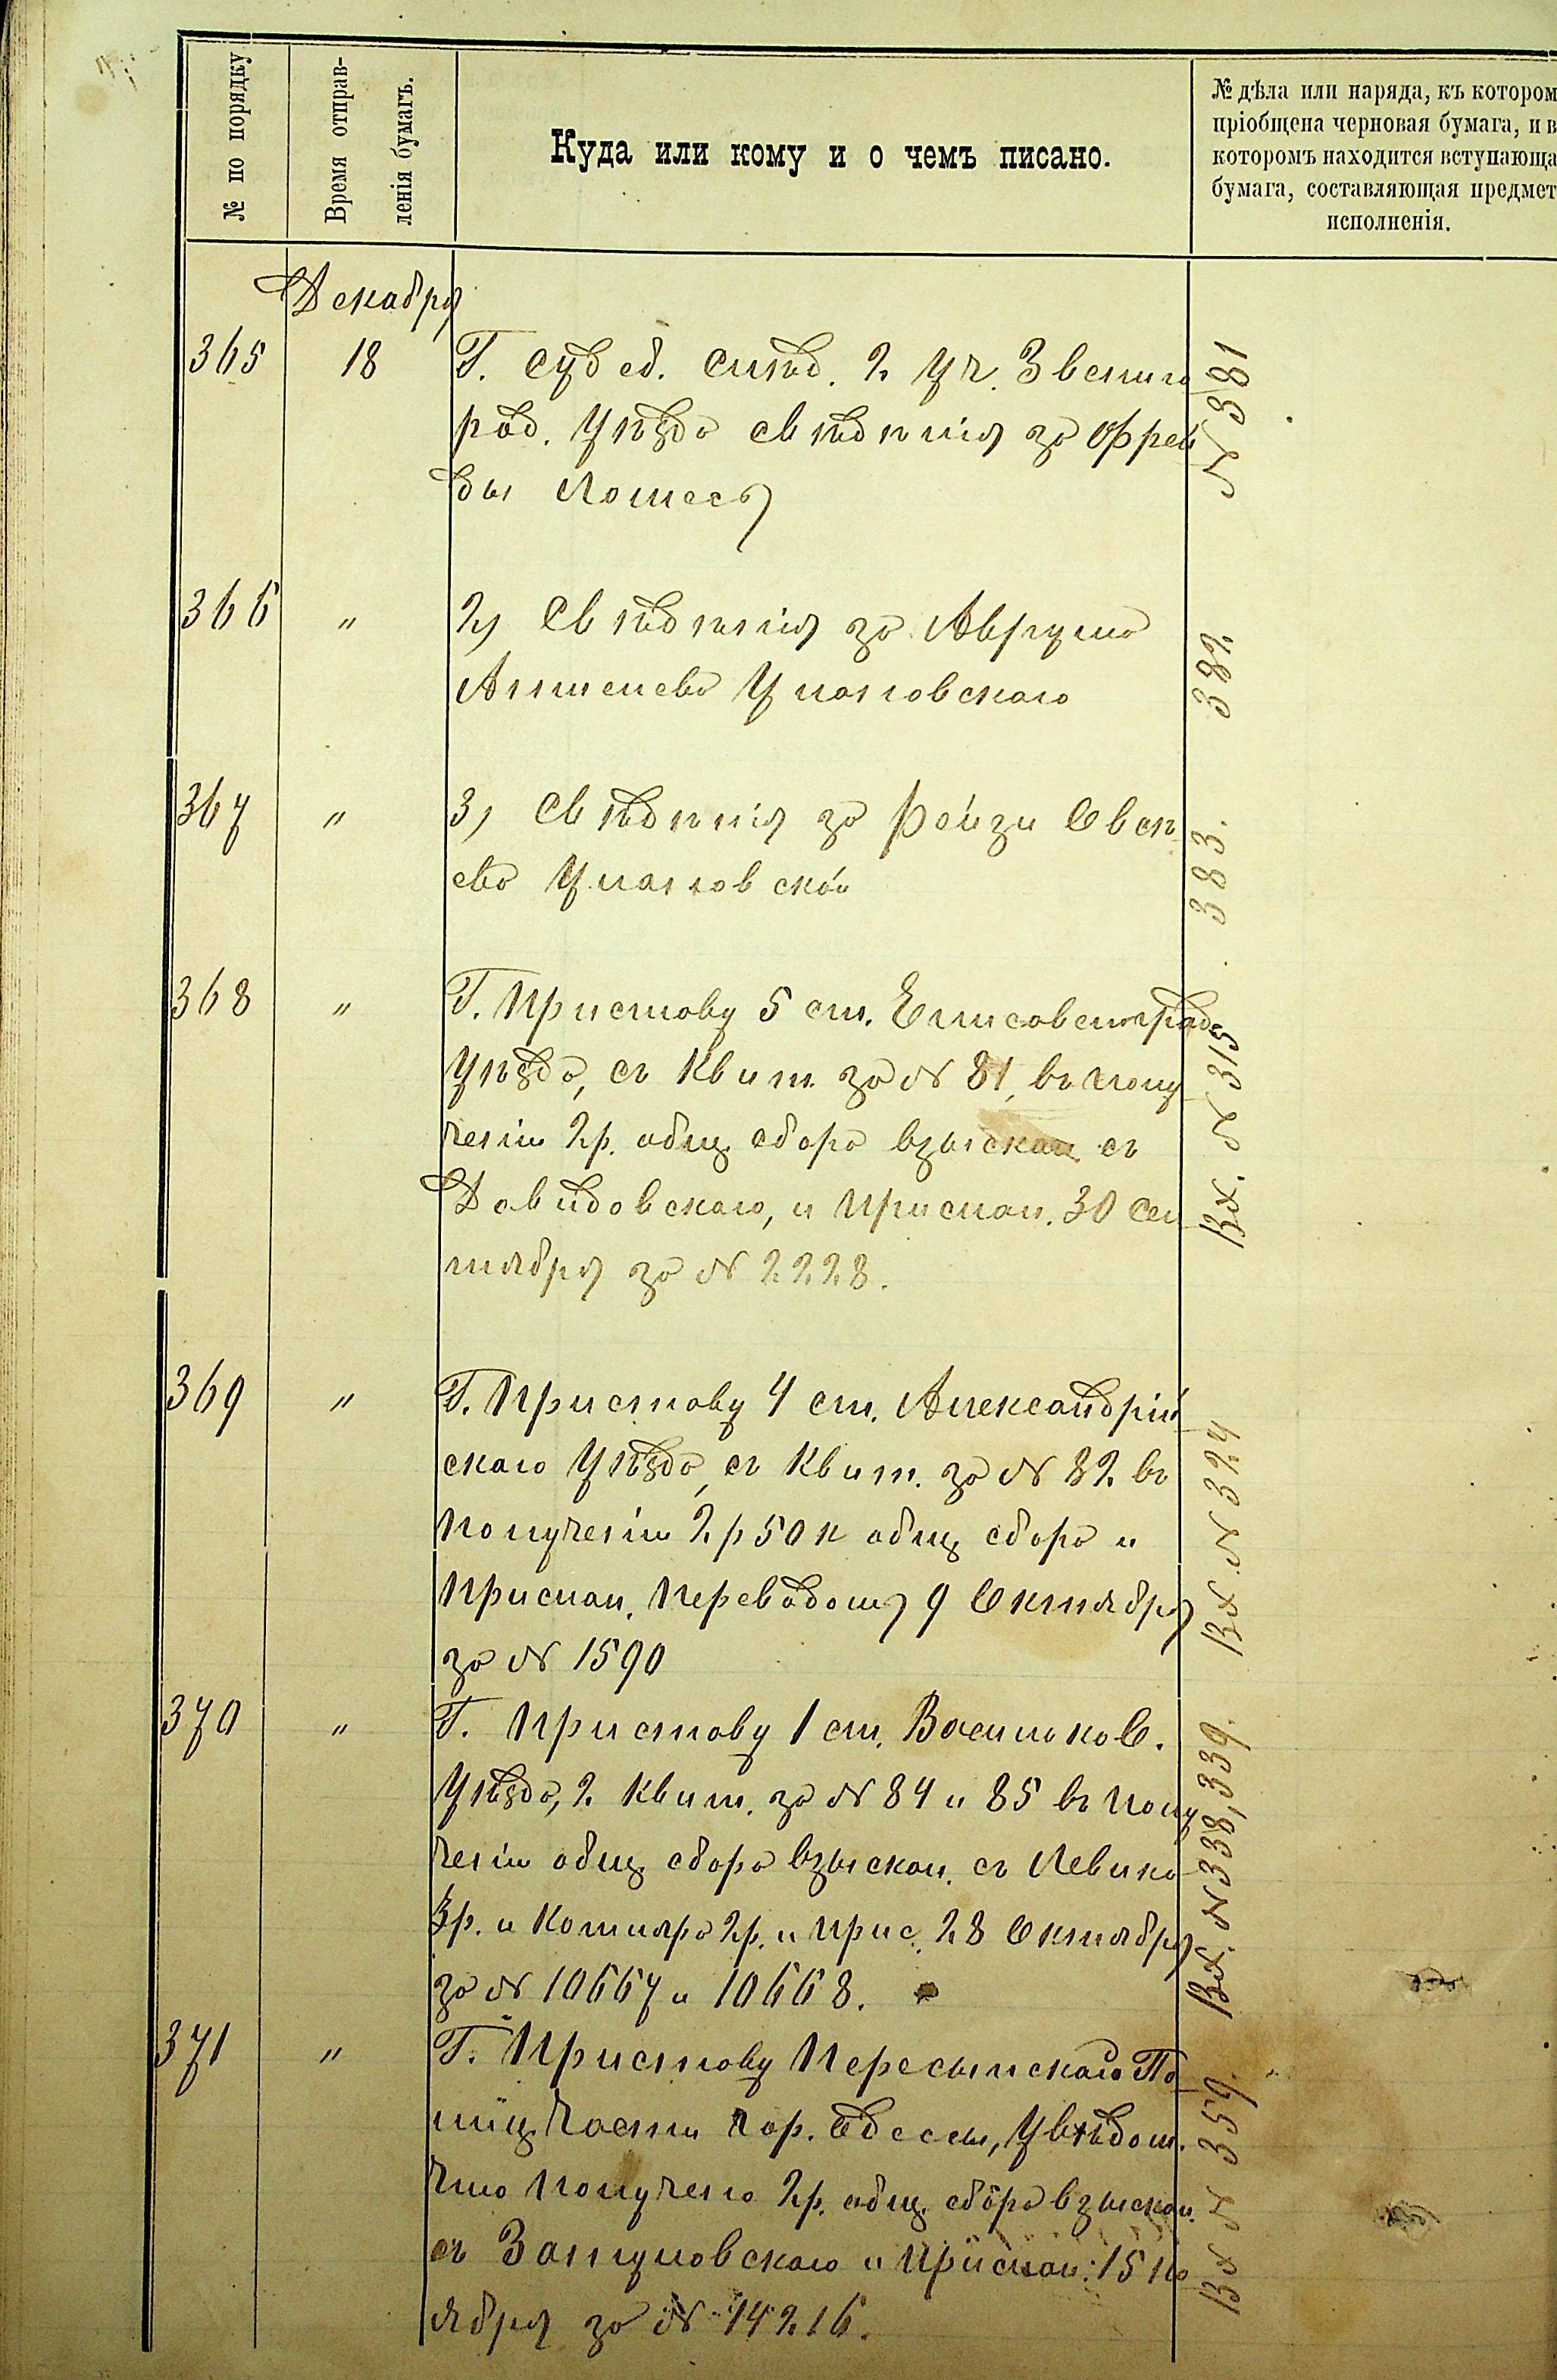 № по порядку
Время отправ-
ленія бумагъ.
Куда или кому и о чемъ писано.
№ дѣла или наряда, къ котором
пріобщена черновая бумага, и в
которомъ находится вступающа
бумага, составляющая предмет
исполненія.
Декабря
365 18 Г. Суд об. Слѣд. 2 уч. Звениго
род. Уѣзда свѣдѣнія за Фрей
ды № 381
366 " 2) Свѣдѣнія за Аврума
Уманскаго 382
367 " 3) Свѣдѣнія за Рейзи Овсѣ
ева 383.
368 " Г. Приставу 5 ст. Елисаветград
Уѣзда, съ Квит. за № 81, въ полу
ченіи 2 р. общ. сбора взыскан. съ
Давидовскаго, и прислан. 30 Сен
тября за № 2228. Вх. № 315
369 " Г. Приставу 4 ст. Александрій
скаго Уѣзда, съ Квит. за № 82 въ
полученіи 2 р 50 к общ сбора и
прислан. переводомъ 9 Октября
за № 1590 Вх № 324
370 " Г. Приставу 1 ст. Васильков.
Уѣзда, 2 Квит. за № 84 и 85 въ полу
ченіи общ сбора взыскан. съ Левина
3 р. и Котляра 2 р. и прис. 28 Октября
за № 10667 и 10668. Вх. № 338, 339.
371 " Г. Приставу Пересыпскаго По
лиц. части гор. Одессы, увѣдом.
что получено 2 р. общ. сбора взыскан.
съ Затуловскаго и прислан. 15 Но
ября за № 14216. Вх № 359.